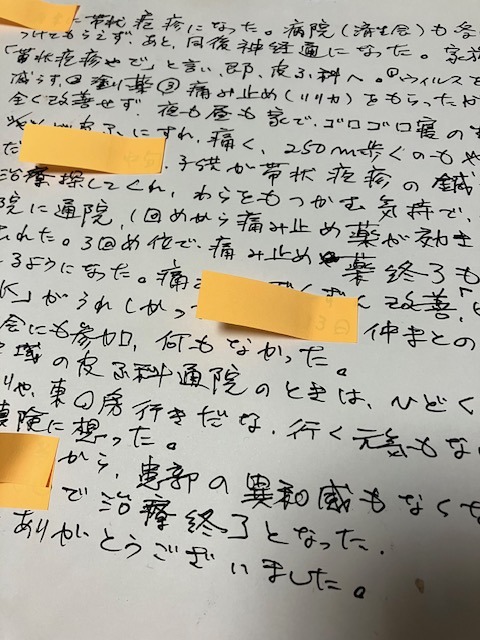 に帯状疱疹になった。病院(済生会)も
つけてもらえず、あと、同後神経痛になった。家族
「帯状疱疹やで」と言い、即、皮ふ科へ。①ウィルスを
減らす、②塗り薬③痛み止め(リリカ)をもらったが
全く改善せず 夜も昼も家で、ゴロゴロ寝の
にすれ、痛く、250m歩くのもや
だ 子供が帯状疱疹の鍼
治療探してくれ、わらをもつかむ気持で、
院に通院、1回めから痛み止め薬が効き
われた。3回め位で、痛み止め薬終了も
るようになった。痛 改善「
K」がうれしかっ 仲まとの
会にも参加、何もなかった。
域の皮ふ科通院のときは、ひどく
りや、東の房行きだな、行く元気もな
険に想った。
から、患部の異和感もなくな
で治療終了となった。
ありがとうございました。